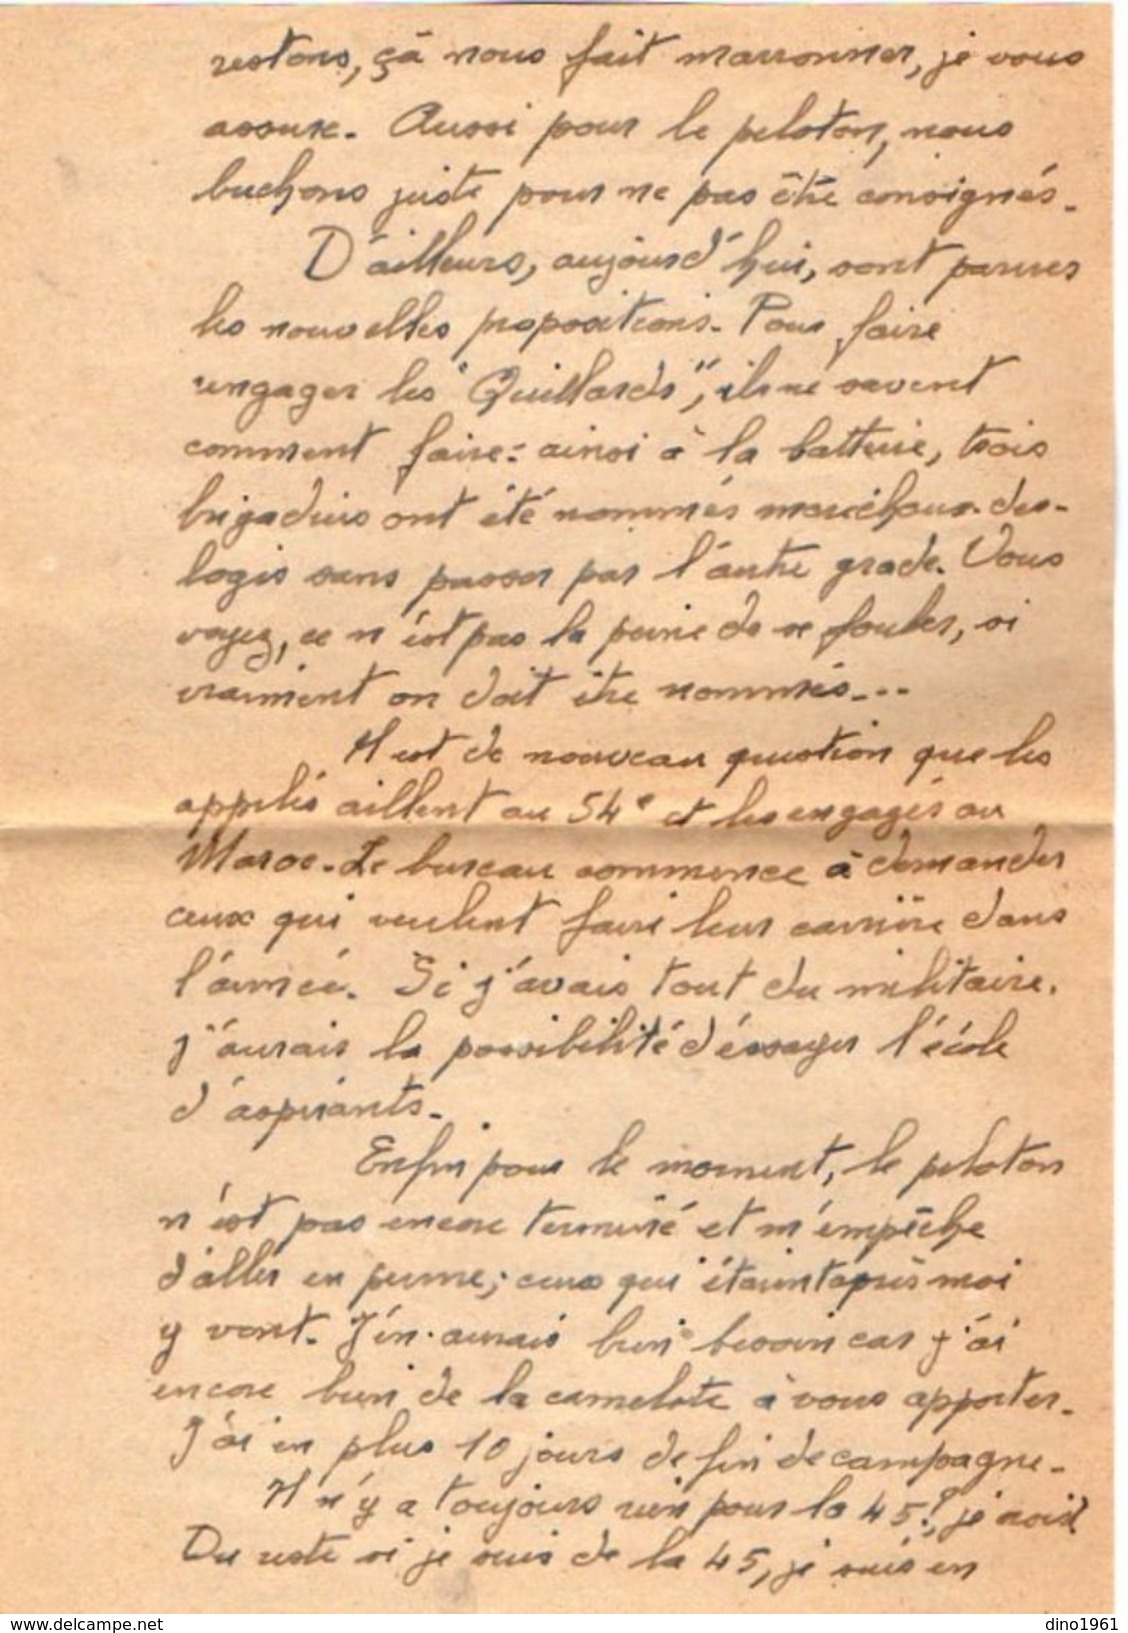 restons, çà nous fait marronner, je vous
assure. Aussi pour le peloton, nous
buchons juste pour ne pas être consignés.
D'ailleurs, aujourd'hui, sont parues
les nouvelles propositions. Pour faire
rengager les "Quillards", ils ne savent
comment faire: ainsi à la batterie, trois
brigadiers ont été nommés maréchaux-des-
logis sans passer par l'autre grade. Vous
voyez, ce n'est pas la peine de se fouler, si
vraiment on doit être nommés...
Il est de nouveau question que les
appelés aillent au 54e et les engagés au
Maroc. Le bureau commence à demander
ceux qui veulent faire leur carrière dans
l'armée. Si j'avais tout du militaire,
j'aurais la possibilité d'éssayer l'école
d'aspirants.
Enfin pour le moment, le peloton
n'est pas encore terminé et m'empêche
d'aller en perme; ceux qui étaient après moi
y vont. J'en aurais bien besoin car j'ai
encore bien de la camelote à vous apporter.
J'ai en plus 10 jours de fin de campagne.
Il n'y a toujours rien pour la 45!, je
Du reste si je suis de la 45, je suis en
www.delcampe.net
dino1961